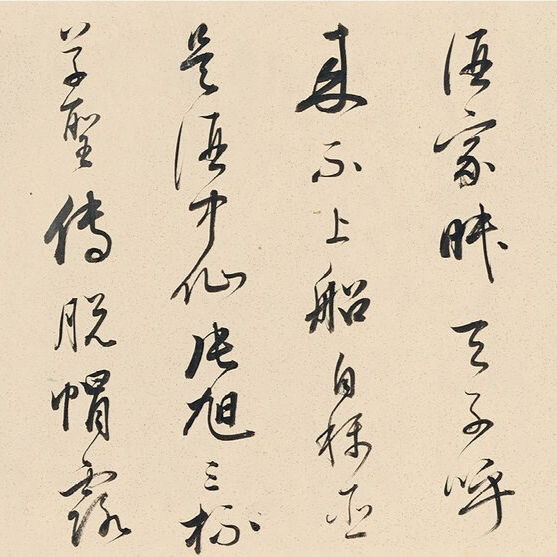 酒家眠天子呼
來不上船自稱臣
是酒中仙張旭三杯
草聖傳脫帽露